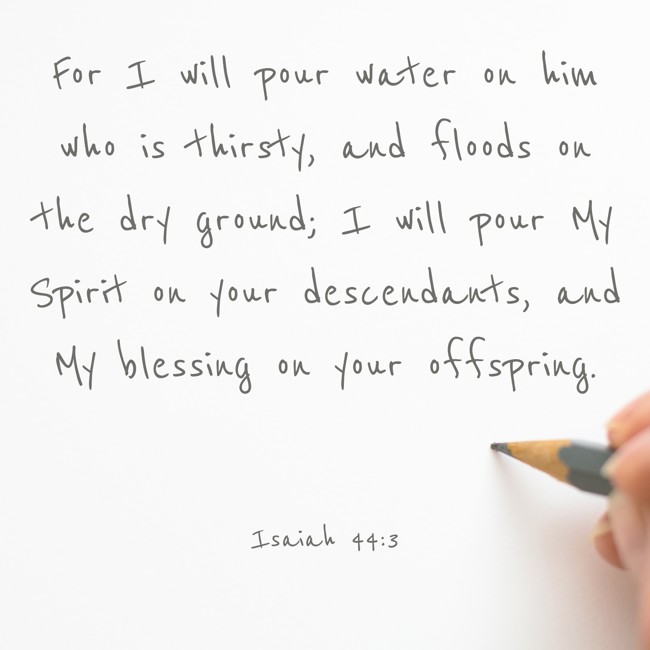 For I will pour water on him
who is thirsty, and floods on
the dry ground; I will pour My
Spirit on your descendants, and
My blessing on your offspring.
Isaiah 44:3